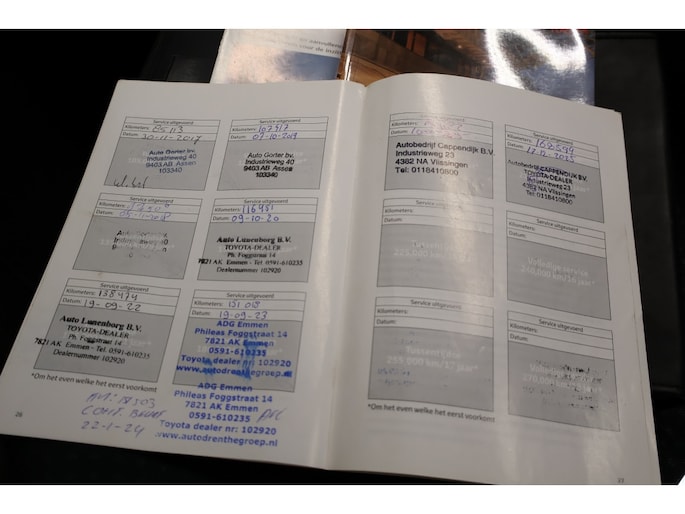 Service uitgevoerd
Kilometers: 85113
Datum: 30-11-2017
Auto Gorter bv.
Industrieweg 40
9403 AB Assen
103340
Service uitgevoerd
Kilometers: 107417
Datum: 07-10-2019
Auto Gorter bv.
Industrieweg 40
9403 AB Assen
103340
Service uitgevoerd
Kilometers:
Datum:
Auto Gorter bv.
Industrieweg 40
Service uitgevoerd
Kilometers: 116451
Datum: 09-10-20
Auto Lunenborg B.V.
TOYOTA-DEALER
Ph. Foggstraat 14
7821 AK Emmen - Tel. 0591-610235
Dealernummer 102920
Service uitgevoerd
Kilometers: 138474
Datum: 19-09-22
Auto Lunenborg B.V.
TOYOTA-DEALER
Ph. Foggstraat 14
7821 AK Emmen - Tel. 0591-610235
Dealernummer 102920
Service uitgevoerd
Kilometers: 151018
Datum: 19-09-23
ADG Emmen
Phileas Foggstraat 14
7821 AK Emmen
0591-610235
Toyota dealer nr: 102920
www.autodrenthegroep.nl
ADG Emmen
Phileas Foggstraat 14
7821 AK Emmen
0591-610235
Toyota dealer nr: 102920
www.autodrenthegroep.nl
*Om het even welke het eerst voorkomt
22-1-24
Service uitgevoerd
Kilometers:
Datum:
Autobedrijf Cappendijk B.V.
Industrieweg 23
4382 NA Vlissingen
Tel: 0118410800
Service uitgevoerd
Kilometers: 162594
Datum: 17-12-2025
CAPPENDIJK BV
TOYOTA-DEALER
Industrieweg 23
4382 NA Vlissingen
Tel. 0118410800
Service uitgevoerd
Kilometers:
Datum:
Tussentijdse
225,000 km/15 jaar*
Service uitgevoerd
Kilometers:
Datum:
Volledige service
240,000 km/16 jaar*
Service uitgevoerd
Kilometers:
Datum:
255,000 km/17 jaar*
Service uitgevoerd
Kilometers:
Datum:
Volledige service
270,000 km/18 jaar*
*Om het even welke het eerst voorkomt